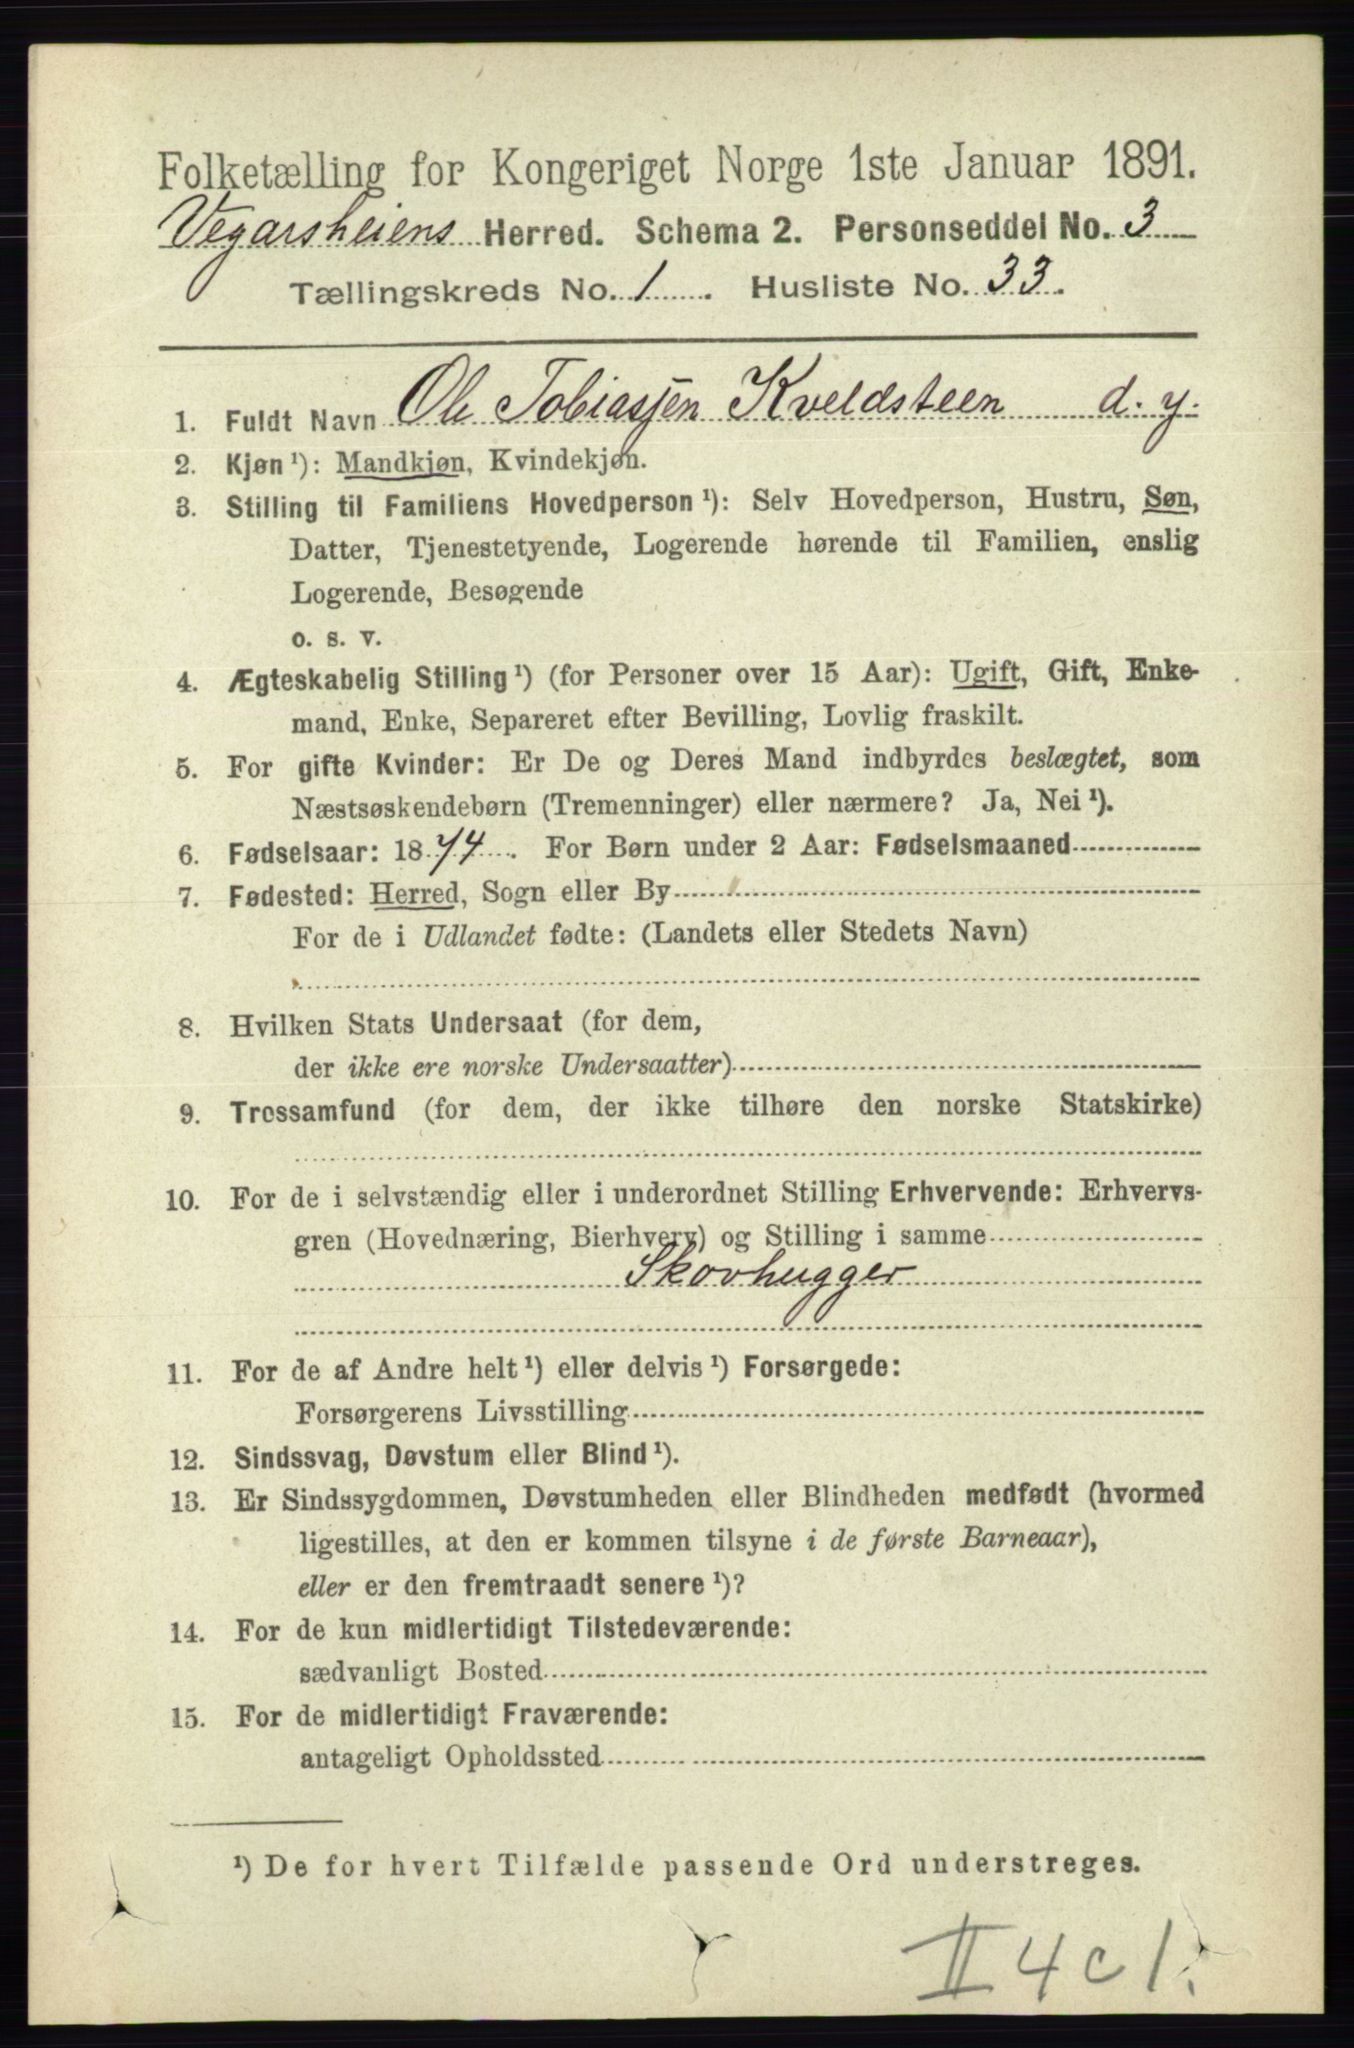 Folketælling for Kongeriget Norge 1ste Januar 1891.
Vegarsheiens Herred. Schema 2. Personseddel No. 3
Tællingskreds No. 1. Husliste No. 33.
1. Fuldt Navn Ole Tobiasjen Kveldsteen d. y.
2. Kjøn ¹): Mandkjøn, Kvindekjøn.
3. Stilling til Familiens Hovedperson ¹): Selv Hovedperson, Hustru, Søn,
Datter, Tjenestetyende, Logerende hørende til Familien, enslig
Logerende, Besøgende
o. s. v.
4. Ægteskabelig Stilling ¹) (for Personer over 15 Aar): Ugift, Gift, Enke-
mand, Enke, Separeret efter Bevilling, Lovlig fraskilt.
5. For gifte Kvinder: Er De og Deres Mand indbyrdes beslægtet, som
Næstsøskendebørn (Tremenninger) eller nærmere? Ja, Nei ¹).
6. Fødselsaar: 1874. For Børn under 2 Aar: Fødselsmaaned
7. Fødested: Herred, Sogn eller By
For de i Udlandet fødte: (Landets eller Stedets Navn)
8. Hvilken Stats Undersaat (for dem,
der ikke ere norske Undersaatter)
9. Trossamfund (for dem, der ikke tilhøre den norske Statskirke)
10. For de i selvstændig eller i underordnet Stilling Erhvervende: Erhvervs-
gren (Hovednæring, Bierhverv) og Stilling i samme
Skovhugger
11. For de af Andre helt ¹) eller delvis ¹) Forsørgede:
Forsørgerens Livsstilling
12. Sindssvag, Døvstum eller Blind ¹).
13. Er Sindssygdommen, Døvstumheden eller Blindheden medfødt (hvormed
ligestilles, at den er kommen tilsyne i de første Barneaar),
eller er den fremtraadt senere ¹)?
14. For de kun midlertidigt Tilstedeværende:
sædvanligt Bosted
15. For de midlertidigt Fraværende:
antageligt Opholdssted
¹) De for hvert Tilfælde passende Ord understreges.
II 4 c 1.